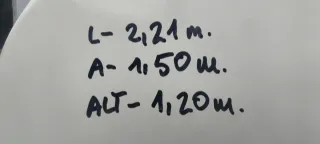 L- 2,21 m.
A- 1,50 m.
ALT- 1,20 m.